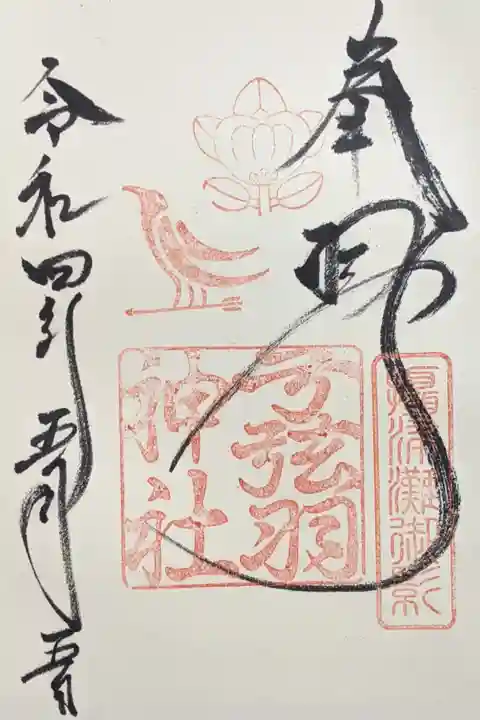 奉拝
攝津灘御影
弓弦羽
神社
令和四年五月五日